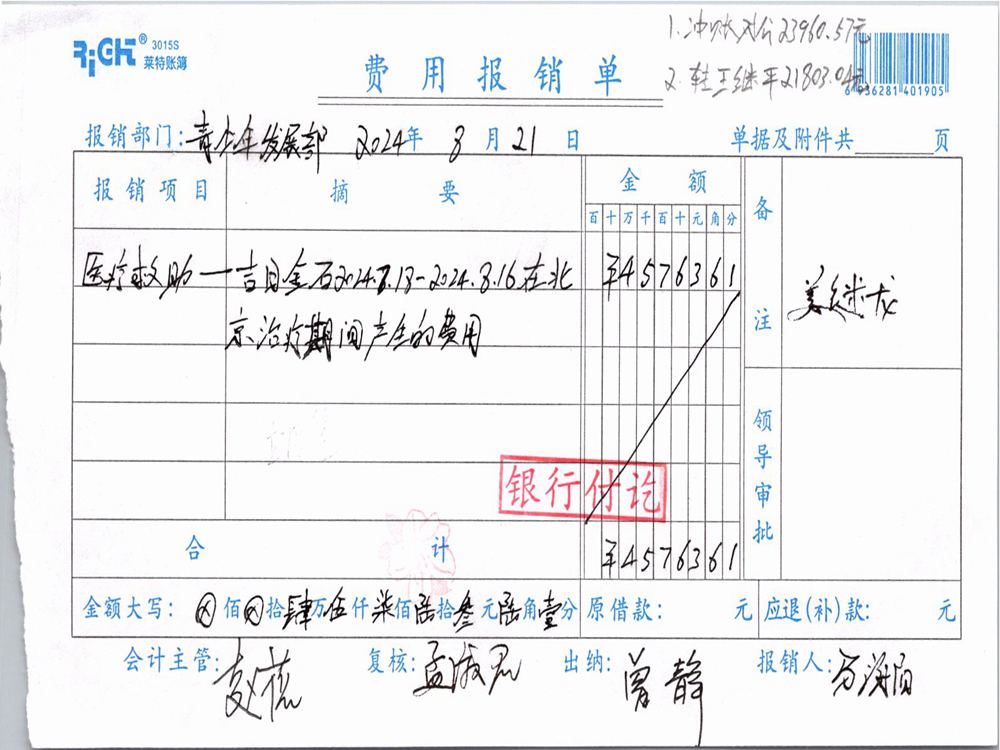 1.冲账对公23960.57元
RiGHT® 3015S
莱特账簿
费用报销单
2.转王继平21803.04元
6 936281 401905
报销部门:青少年发展部 2024年 8月21日 单据及附件共 页
报销项目 摘要 金额 备注
百十万千百十元角分
医疗救助 — 吉日金石2024.7.18-2024.8.16在北 ¥4576361
京治疗期间产生的费用
领导审批
银行付讫
合计 ¥4576361
金额大写: ⊗佰⊗拾肆万伍仟柒佰陆拾叁元陆角壹分 原借款: 元 应退(补)款: 元
会计主管: 复核:孟淑君 出纳:曾静 报销人: